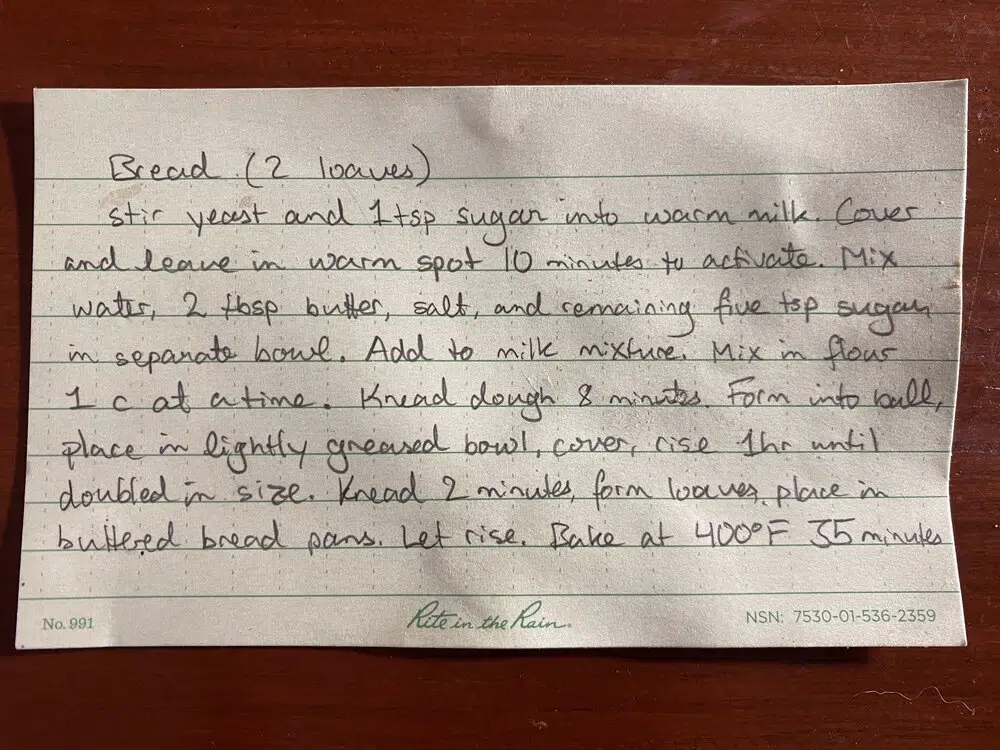 Bread (2 loaves)
stir yeast and 1 tsp sugar into warm milk. Cover
and leave in warm spot 10 minutes to activate. Mix
water, 2 tbsp butter, salt, and remaining five tsp sugar
in separate bowl. Add to milk mixture. Mix in flour
1 c at a time. Knead dough 8 minutes. Form into ball,
place in lightly greased bowl, cover, rise 1hr until
doubled in size. Knead 2 minutes, form loaves, place in
buttered bread pans. Let rise. Bake at 400°F 35 minutes
No. 991 Rite in the Rain. NSN: 7530-01-536-2359